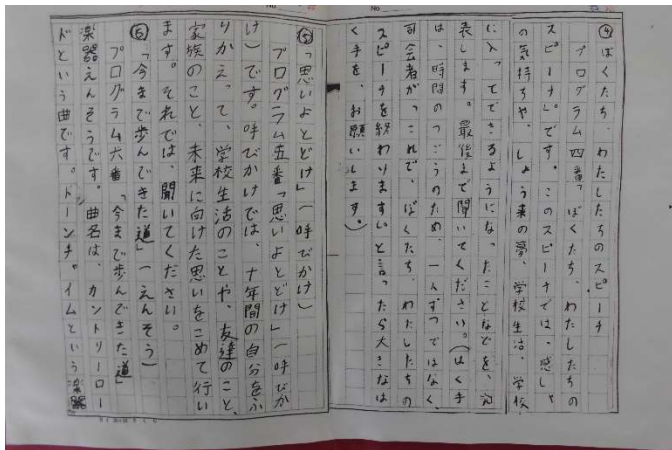 ④ぼくたち、わたしたちのスピーチ
プログラム四番「ぼくたち、わたしたちの
スピーチ」です。このスピーチでは、感しゃ
の気持ちや、しょう来の夢、学校生活、学校
に入ってできるようになったことなどを、発
表します。最後まで聞いてください。(はく手
は、時間のつごうのため、一人ずつではなく、
司会者が「これで、ぼくたち、わたしたちの
スピーチを終わります」と言ったら大きなは
く手を、お願いします。)
⑤「思いよとどけ」(呼びかけ)
プログラム五番「思いよとどけ」(呼びか
け)です。呼びかけでは、十年間の自分をふ
りかえって、学校生活のことや、友達のこと、
家族のこと、未来に向けた思いをこめて行い
ます。それでは、聞いてください。
⑥「今まで歩んできた道」(えんそう)
プログラム六番「今まで歩んできた道」
楽器えんそうです。曲名は、カントリーロー
ドという曲です。トーンチャイムという楽器